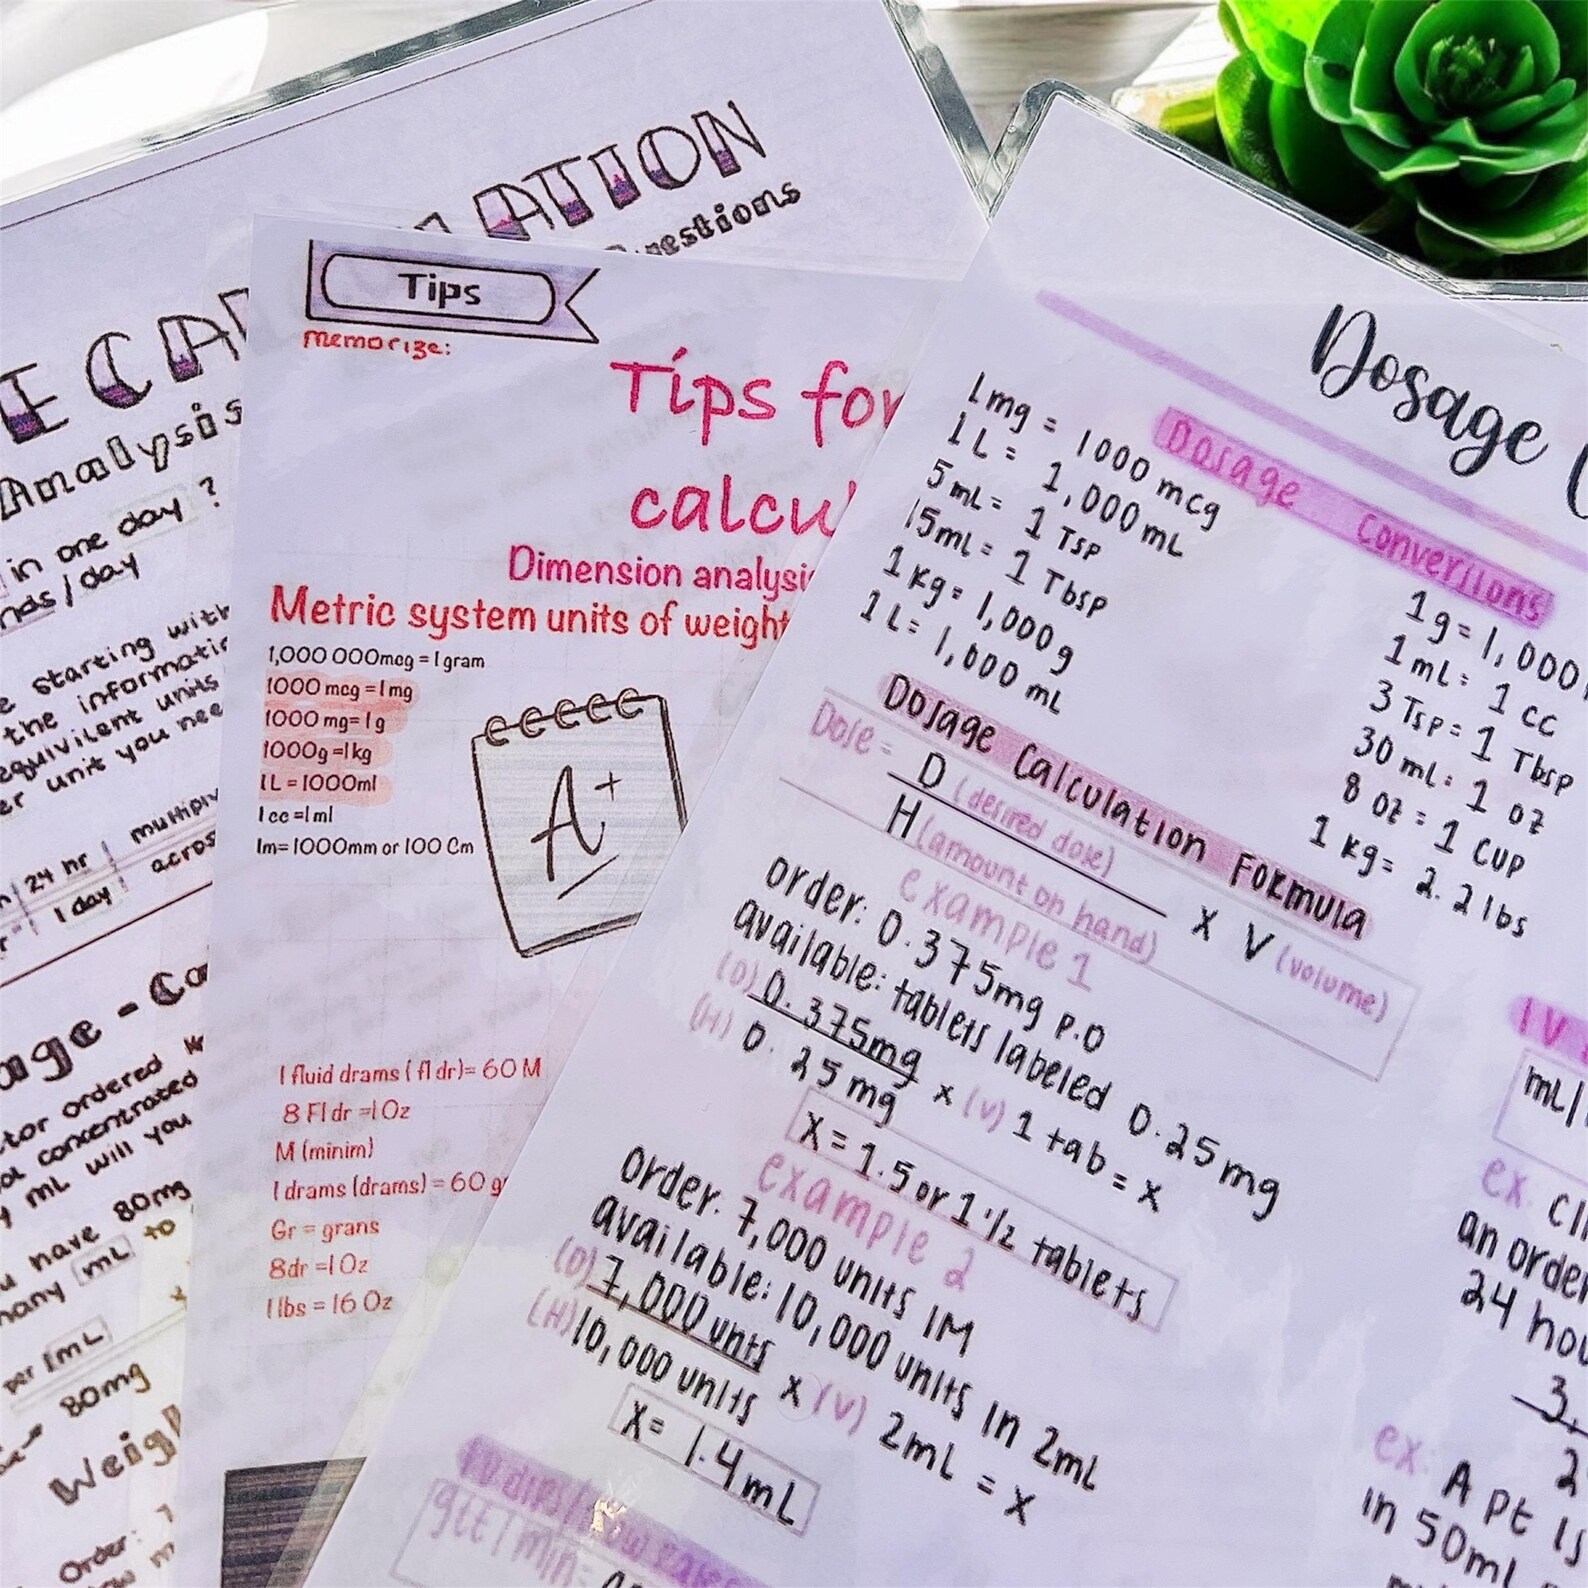 ATION
estions
E CA
Analysis
in one day ?
nds/day
e starting with
the informatio
equivilent units
er unit you nee
24 hr
1 day
multiply
across
age - Co
tor ordered
concentrated
mL will you
u have 80mg
many mL to
per 1mL
80mg
Weigh
Order:
Tips
memorize:
Tips for
calcu
Dimension analysis
Metric system units of weight
1,000 000mcg = 1 gram
1000 mcg = 1 mg
1000 mg= 1 g
1000g =1 kg
1 L = 1000ml
1 cc =1 ml
1m= 1000mm or 100 Cm
A+
1 fluid drams ( fl dr)= 60 M
8 Fl dr =1 Oz
M (minim)
1 drams (drams) = 60 gr
Gr = grans
8dr =1 Oz
1 lbs = 16 Oz
Dosage C
Dosage Conversions
1mg = 1000 mcg
1 L = 1,000 mL
5 mL = 1 Tsp
15mL = 1 Tbsp
1 kg = 1,000g
1 L = 1,000 mL
1g = 1,000
1 mL = 1 cc
3 Tsp = 1 Tbsp
30 mL = 1 oz
8 oz = 1 cup
1 kg = 2.2 lbs
Dosage Calculation Formula
Dose = D (desired dose)
H (amount on hand)
x V (volume)
example 1
order: 0.375mg P.O
available: tablets labeled 0.25mg
(D) 0.375mg
(H) 0.25 mg
x (v) 1 tab = x
X = 1.5 or 1 1/2 tablets
example 2
order: 7,000 units IM
available: 10,000 units in 2mL
(D) 7,000 units
(H) 10,000 units
x (v) 2mL = x
X = 1.4 mL
gtt / min:
IV
mL/
ex.
an order
24 hou
3,
ex: A pt is
in 50mL